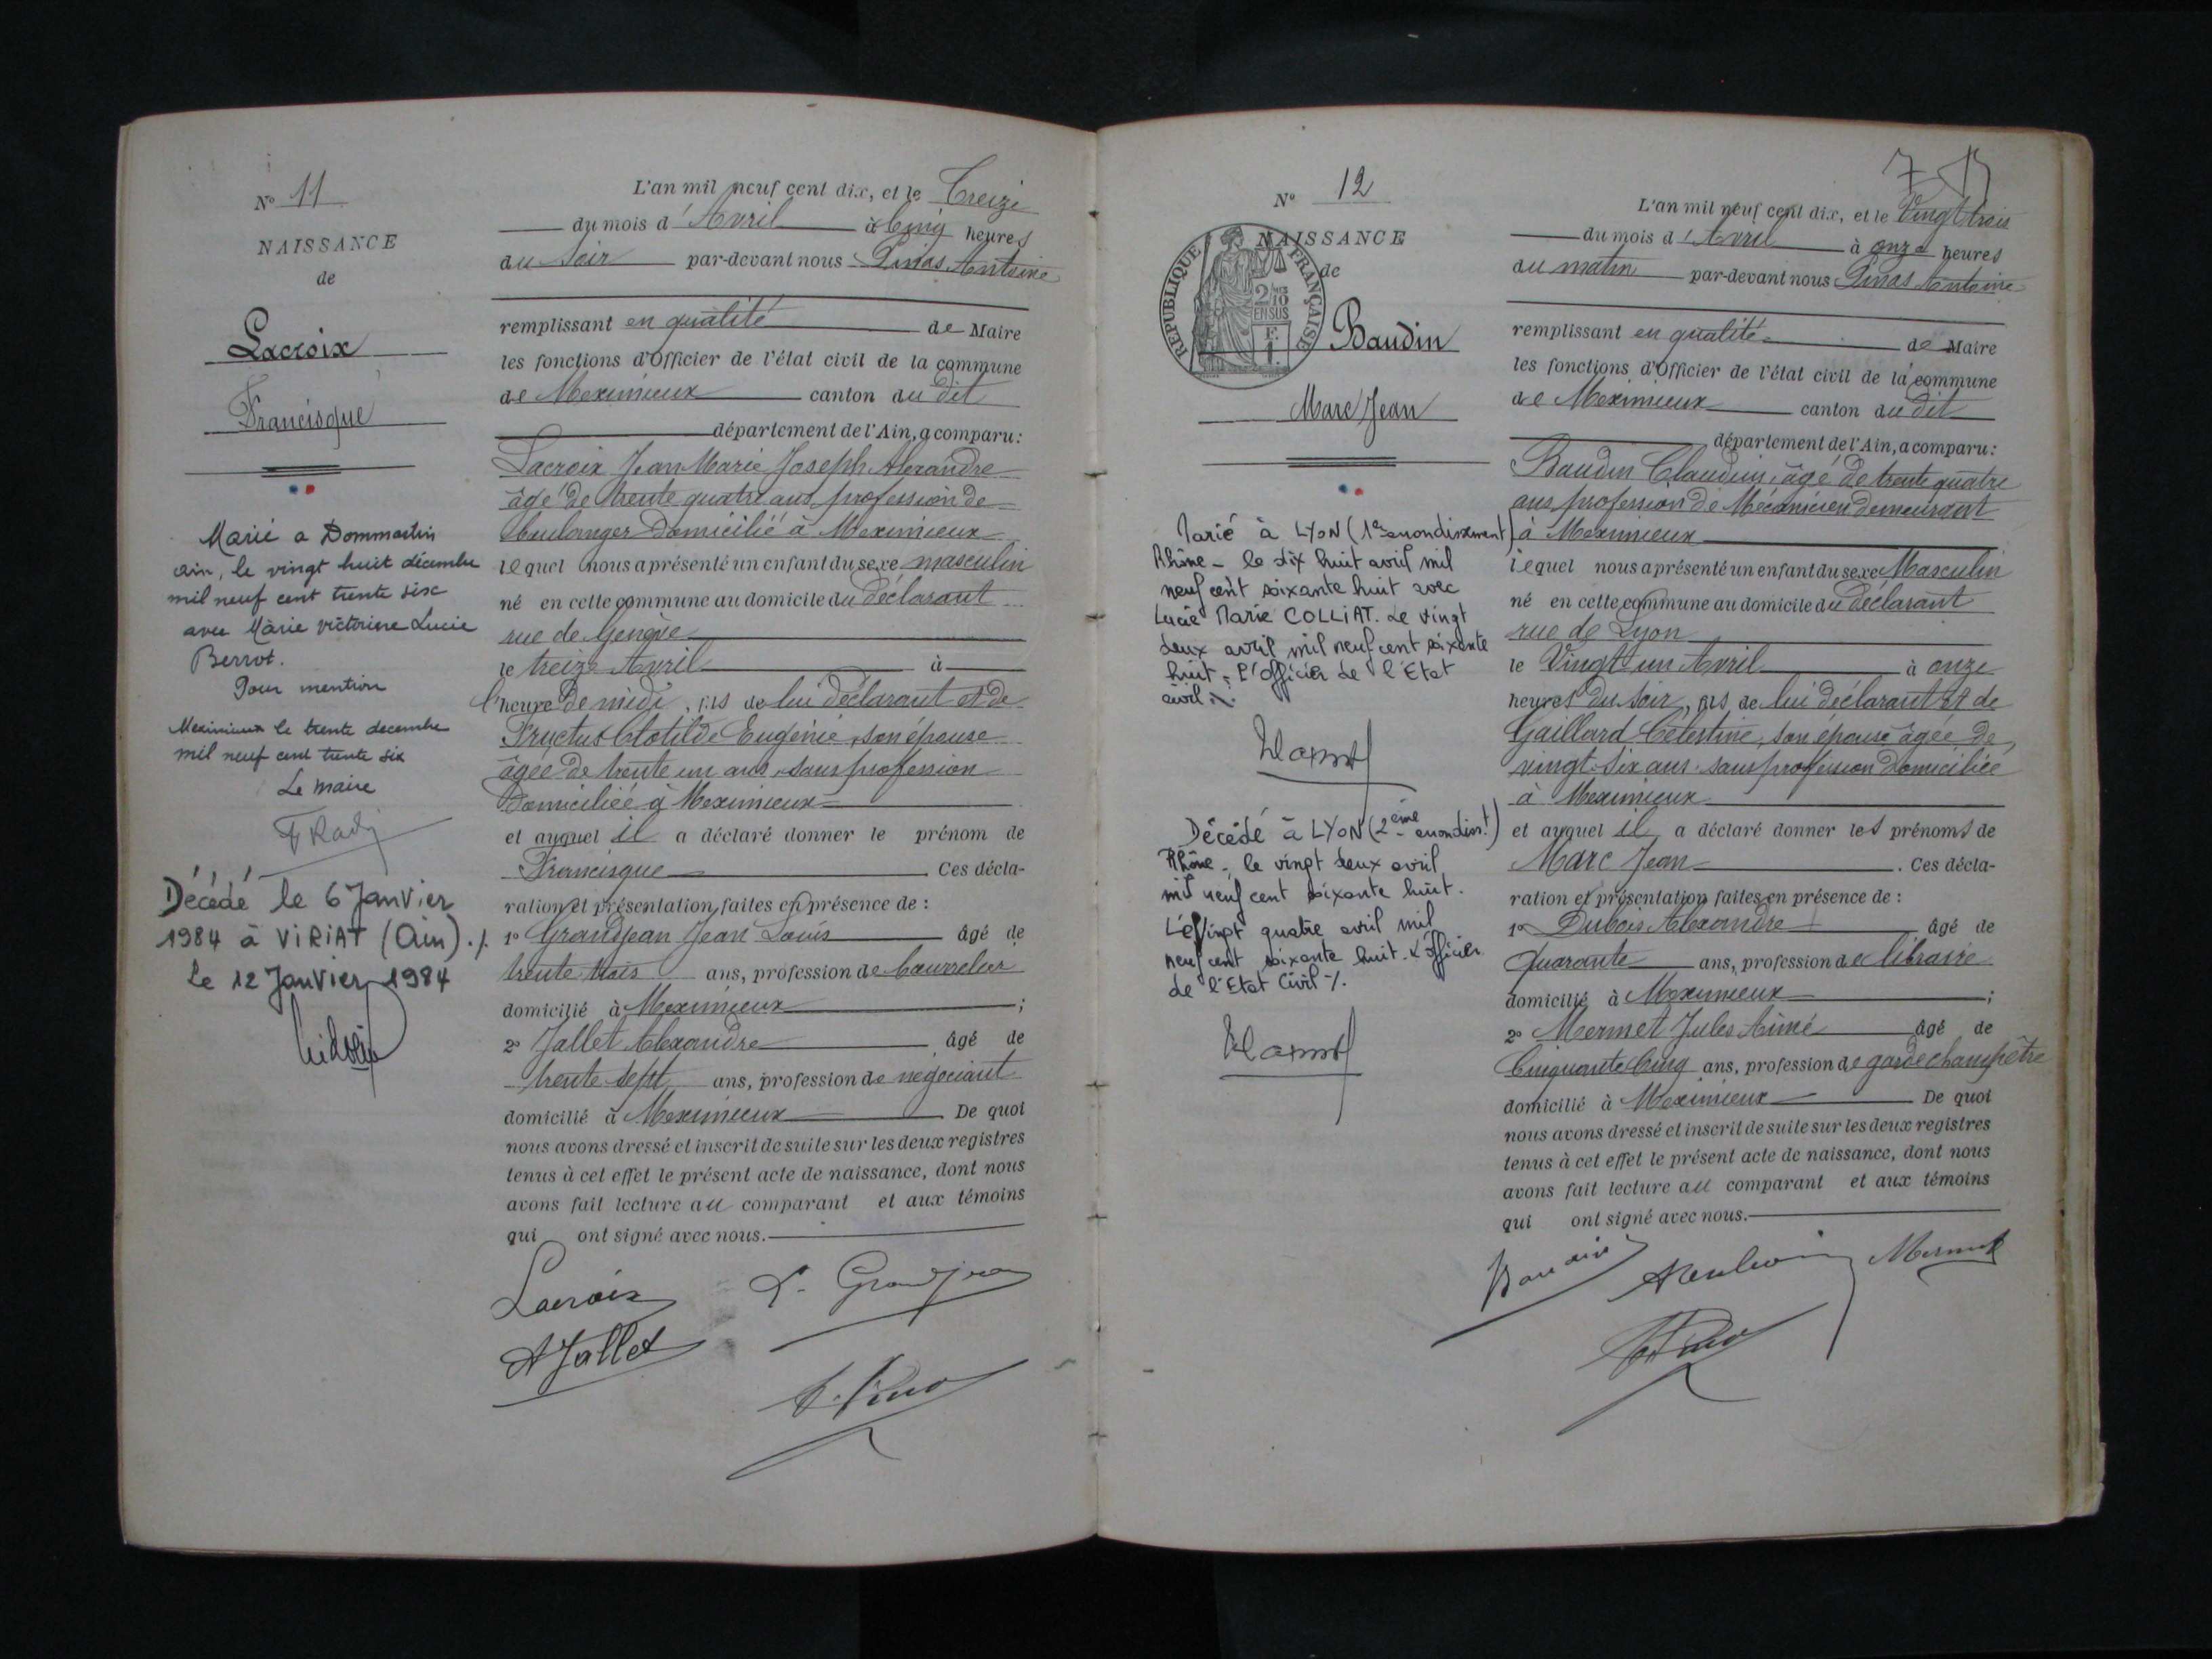 N° 11
NAISSANCE
de
Lacroix
Francisque
Marié a Dommartin
ain, le vingt huit décembre
mil neuf cent trente six
avec Marie victorine Lucie
Berrot.
Pour mention
Meximieux le trente decembre
mil neuf cent trente six
Le maire
Décédé le 6 Janvier
1984 à VIRIAT (Ain)./.
Le 12 Janvier 1984
L'an mil neuf cent dix, et le Treize
du mois d'Avril à Cinq heures
du Soir par-devant nous Pinas Antoine
remplissant en qualité de Maire
les fonctions d'Officier de l'état civil de la commune
de Meximieux canton du dit
département de l'Ain, a comparu :
Lacroix Jean Marie Joseph Alexandre
âgé de trente quatre ans, profession de
boulanger domicilié à Meximieux
lequel nous a présenté un enfant du sexe masculin
né en cette commune au domicile du déclarant
rue de Genève
le treize Avril à
l'heure de midi, fils de lui déclarant et de
Fructus Clotilde Eugénie, son épouse
âgée de trente un ans, sans profession
domiciliée à Meximieux
et auquel il a déclaré donner le prénom de
Francisque Ces décla-
ration et présentation faites en présence de :
1° Grandjean Jean Louis âgé de
trente trois ans, profession de bourrelier
domicilié à Meximieux ;
2° Jallet Alexandre âgé de
trente sept ans, profession de négociant
domicilié à Meximieux De quoi
nous avons dressé et inscrit de suite sur les deux registres
tenus à cet effet le présent acte de naissance, dont nous
avons fait lecture au comparant et aux témoins
qui ont signé avec nous.
Lacroix L. Grandjean
A Jallet
N° 12
NAISSANCE
de
REPUBLIQUE FRANÇAISE
2/10
EN SUS
Baudin
Marc Jean
Marié à LYON (1er arrondissement)
Rhône - le dix huit avril mil
neuf cent soixante huit avec
Lucie Marie COLLIAT. Le vingt
deux avril mil neuf cent soixante
huit. L'officier de l'Etat
civil ./.
Décédé à LYON (2ème arrondist)
Rhône, le vingt deux avril
mil neuf cent soixante huit.
Le Vingt quatre avril mil
neuf cent soixante huit. L'officier
de l'Etat Civil ./.
7
L'an mil neuf cent dix, et le Vingt trois
du mois d'Avril à onze heures
du matin par-devant nous Pinas Antoine
remplissant en qualité de Maire
les fonctions d'Officier de l'état civil de la commune
de Meximieux canton du dit
département de l'Ain, a comparu :
Baudin Claudius, âgé de trente quatre
ans profession de Mécanicien demeurant
à Meximieux
lequel nous a présenté un enfant du sexe Masculin
né en cette commune au domicile du déclarant
rue de Lyon
le Vingt un Avril à onze
heures du soir, fils de lui déclarant et de
Gaillard Célestine, son épouse âgée de
vingt-six ans, sans profession domiciliée
à Meximieux
et auquel il a déclaré donner les prénoms de
Marc Jean . Ces décla-
ration et présentation faites en présence de :
1° Dubois Alexandre âgé de
Quarante ans, profession de libraire
domicilié à Meximieux ;
2° Mermet Jules Aimé âgé de
Cinquante Cinq ans, profession de garde champêtre
domicilié à Meximieux De quoi
nous avons dressé et inscrit de suite sur les deux registres
tenus à cet effet le présent acte de naissance, dont nous
avons fait lecture au comparant et aux témoins
qui ont signé avec nous.
Baudin Mermet